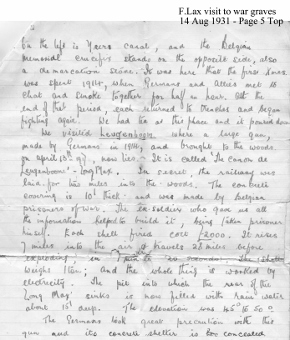 F.Lax visit to war graves
14 Aug 1931 - Page 5 Top
On the left is Ypres canal, and the Belgian
memorial crucifix stands on the opposite side, also
a demarcation stone. It was here that the first Xmas
was spent 1914, when Germans and Allies met to
chat and smoke together for half an hour. At the
end of that period, each returned to trenches and began
fighting again. We had tea at this place and it poured down
We visited Leugenboom where a large gun,
made by Germans in 1914, and brought to the woods
on april 1917, now lies. It is called The Canon de
Leugenboom - Long Max. In secret, the railway was
laid for two miles into the woods. The concrete
covering is 10' thick and was made by Belgian
prisoners of war. The Ex soldier who gave us all
the information helped to build it, being taken prisoner
himself. Each shell fired cost £2000. It rises
7 miles into the air & travels 28 miles before
exploding, in
weighs 1 ton; and the whole thing is worked by
electricity. The pit into which the rear of the
Long Max sinks is now filled with rain water
about 15' deep. The elevation was 45° to 50°
The Germans took great precaution with this
gun and its concrete shelter is too concealed